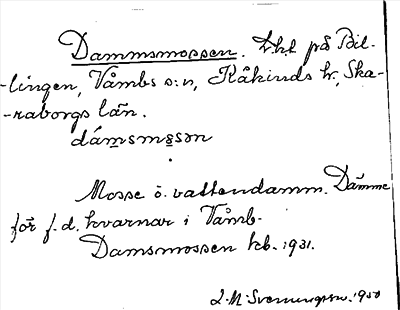 Dammsmossen. trkt på Bil-
-lingen, Våmbs s:n, Kåkinds hr, Ska-
-raborgs län.
dámsmɷsən
Mosse ö. vattendamm. Dämme
för f.d. kvarnar i Våmb.
Damsmossen kb. 1931.
L.M. Svenungsson. 1950